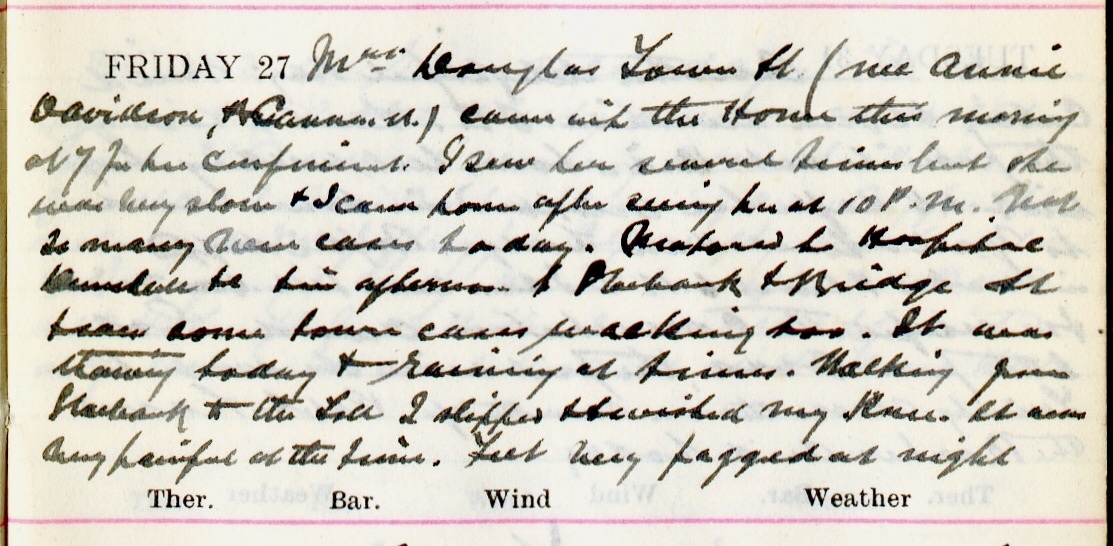 FRIDAY 27 Mrs Douglas Town St. (nee Annie
Davidson, ) came into the Home this morning
at 7 for her confinement. I saw her several times but she
was very slow & I came home after seeing her at 10 P.M. Not
so many new cases today. to Hospital
this afternoon & Roebank & Bridge St
& saw some town cases walking too. It was
thawing today & raining at times. Walking from
Roebank to the I slipped & twisted my Knee. It was
very painful at the time. Felt very fagged at night
Ther. Bar. Wind Weather